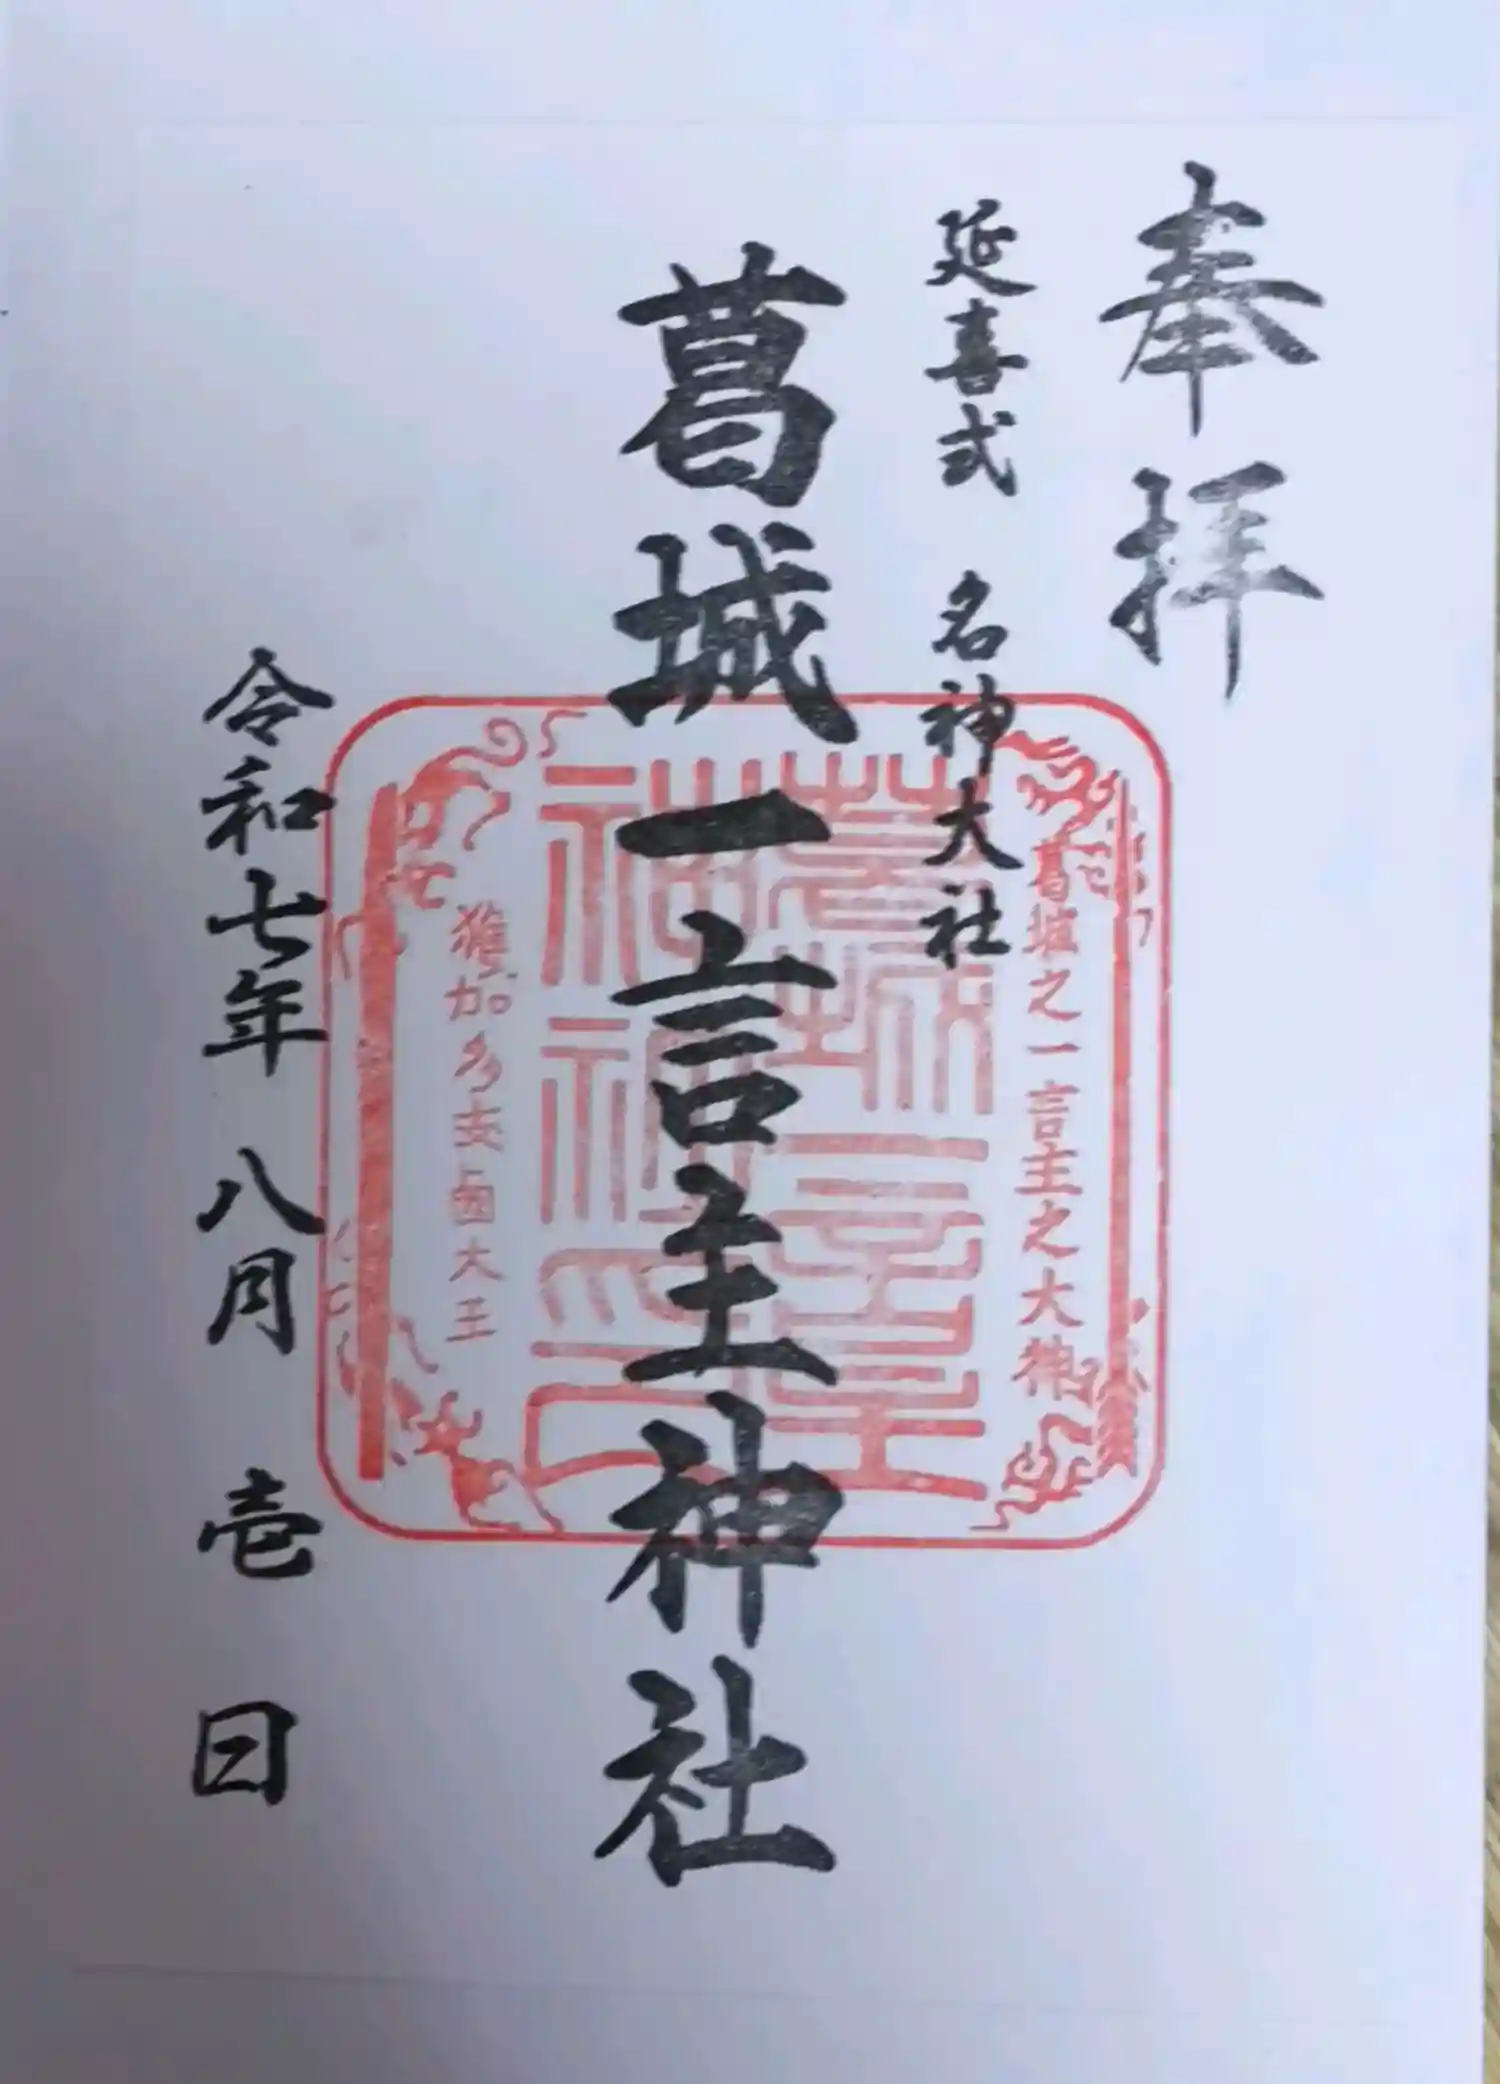 奉拝
延喜式 名神大社
葛城一言主神社
令和七年 八月 壱 日
葛城之一言主之大神
獲加多支鹵大王
葛城一言主
神社